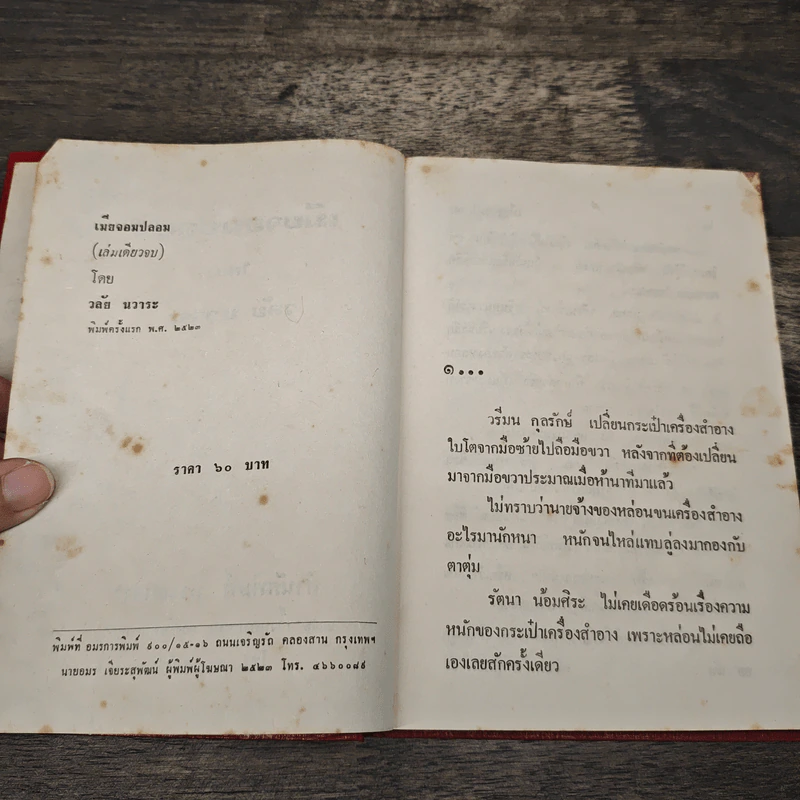 เมียจอมปลอม
(เล่มเดียวจบ)
โดย
วลัย นวาระ
พิมพ์ครั้งแรก พ.ศ. ๒๕๒๓
ราคา ๖๐ บาท
พิมพ์ที่ อมรการพิมพ์ ๙๐๐/๑๕-๑๖ ถนนเจริญรัถ คลองสาน กรุงเทพฯ
นายอมร เจียระสุพัฒน์ ผู้พิมพ์ผู้โฆษณา ๒๕๒๓ โทร. ๔๖๖๐๐๘๙
๑...
วรีมน กุลรักษ์ เปลี่ยนกระเป๋าเครื่องสำอาง
ใบโตจากมือซ้ายไปถือมือขวา หลังจากที่ต้องเปลี่ยน
มาจากมือขวาประมาณเมื่อห้านาทีมาแล้ว
ไม่ทราบว่านายจ้างของหล่อนขนเครื่องสำอาง
อะไรมานักหนา หนักจนไหล่แทบลู่ลงมากองกับ
ตาตุ่ม
รัตนา น้อมศิระ ไม่เคยเดือดร้อนเรื่องความ
หนักของกระเป๋าเครื่องสำอาง เพราะหล่อนไม่เคยถือ
เองเลยสักครั้งเดียว